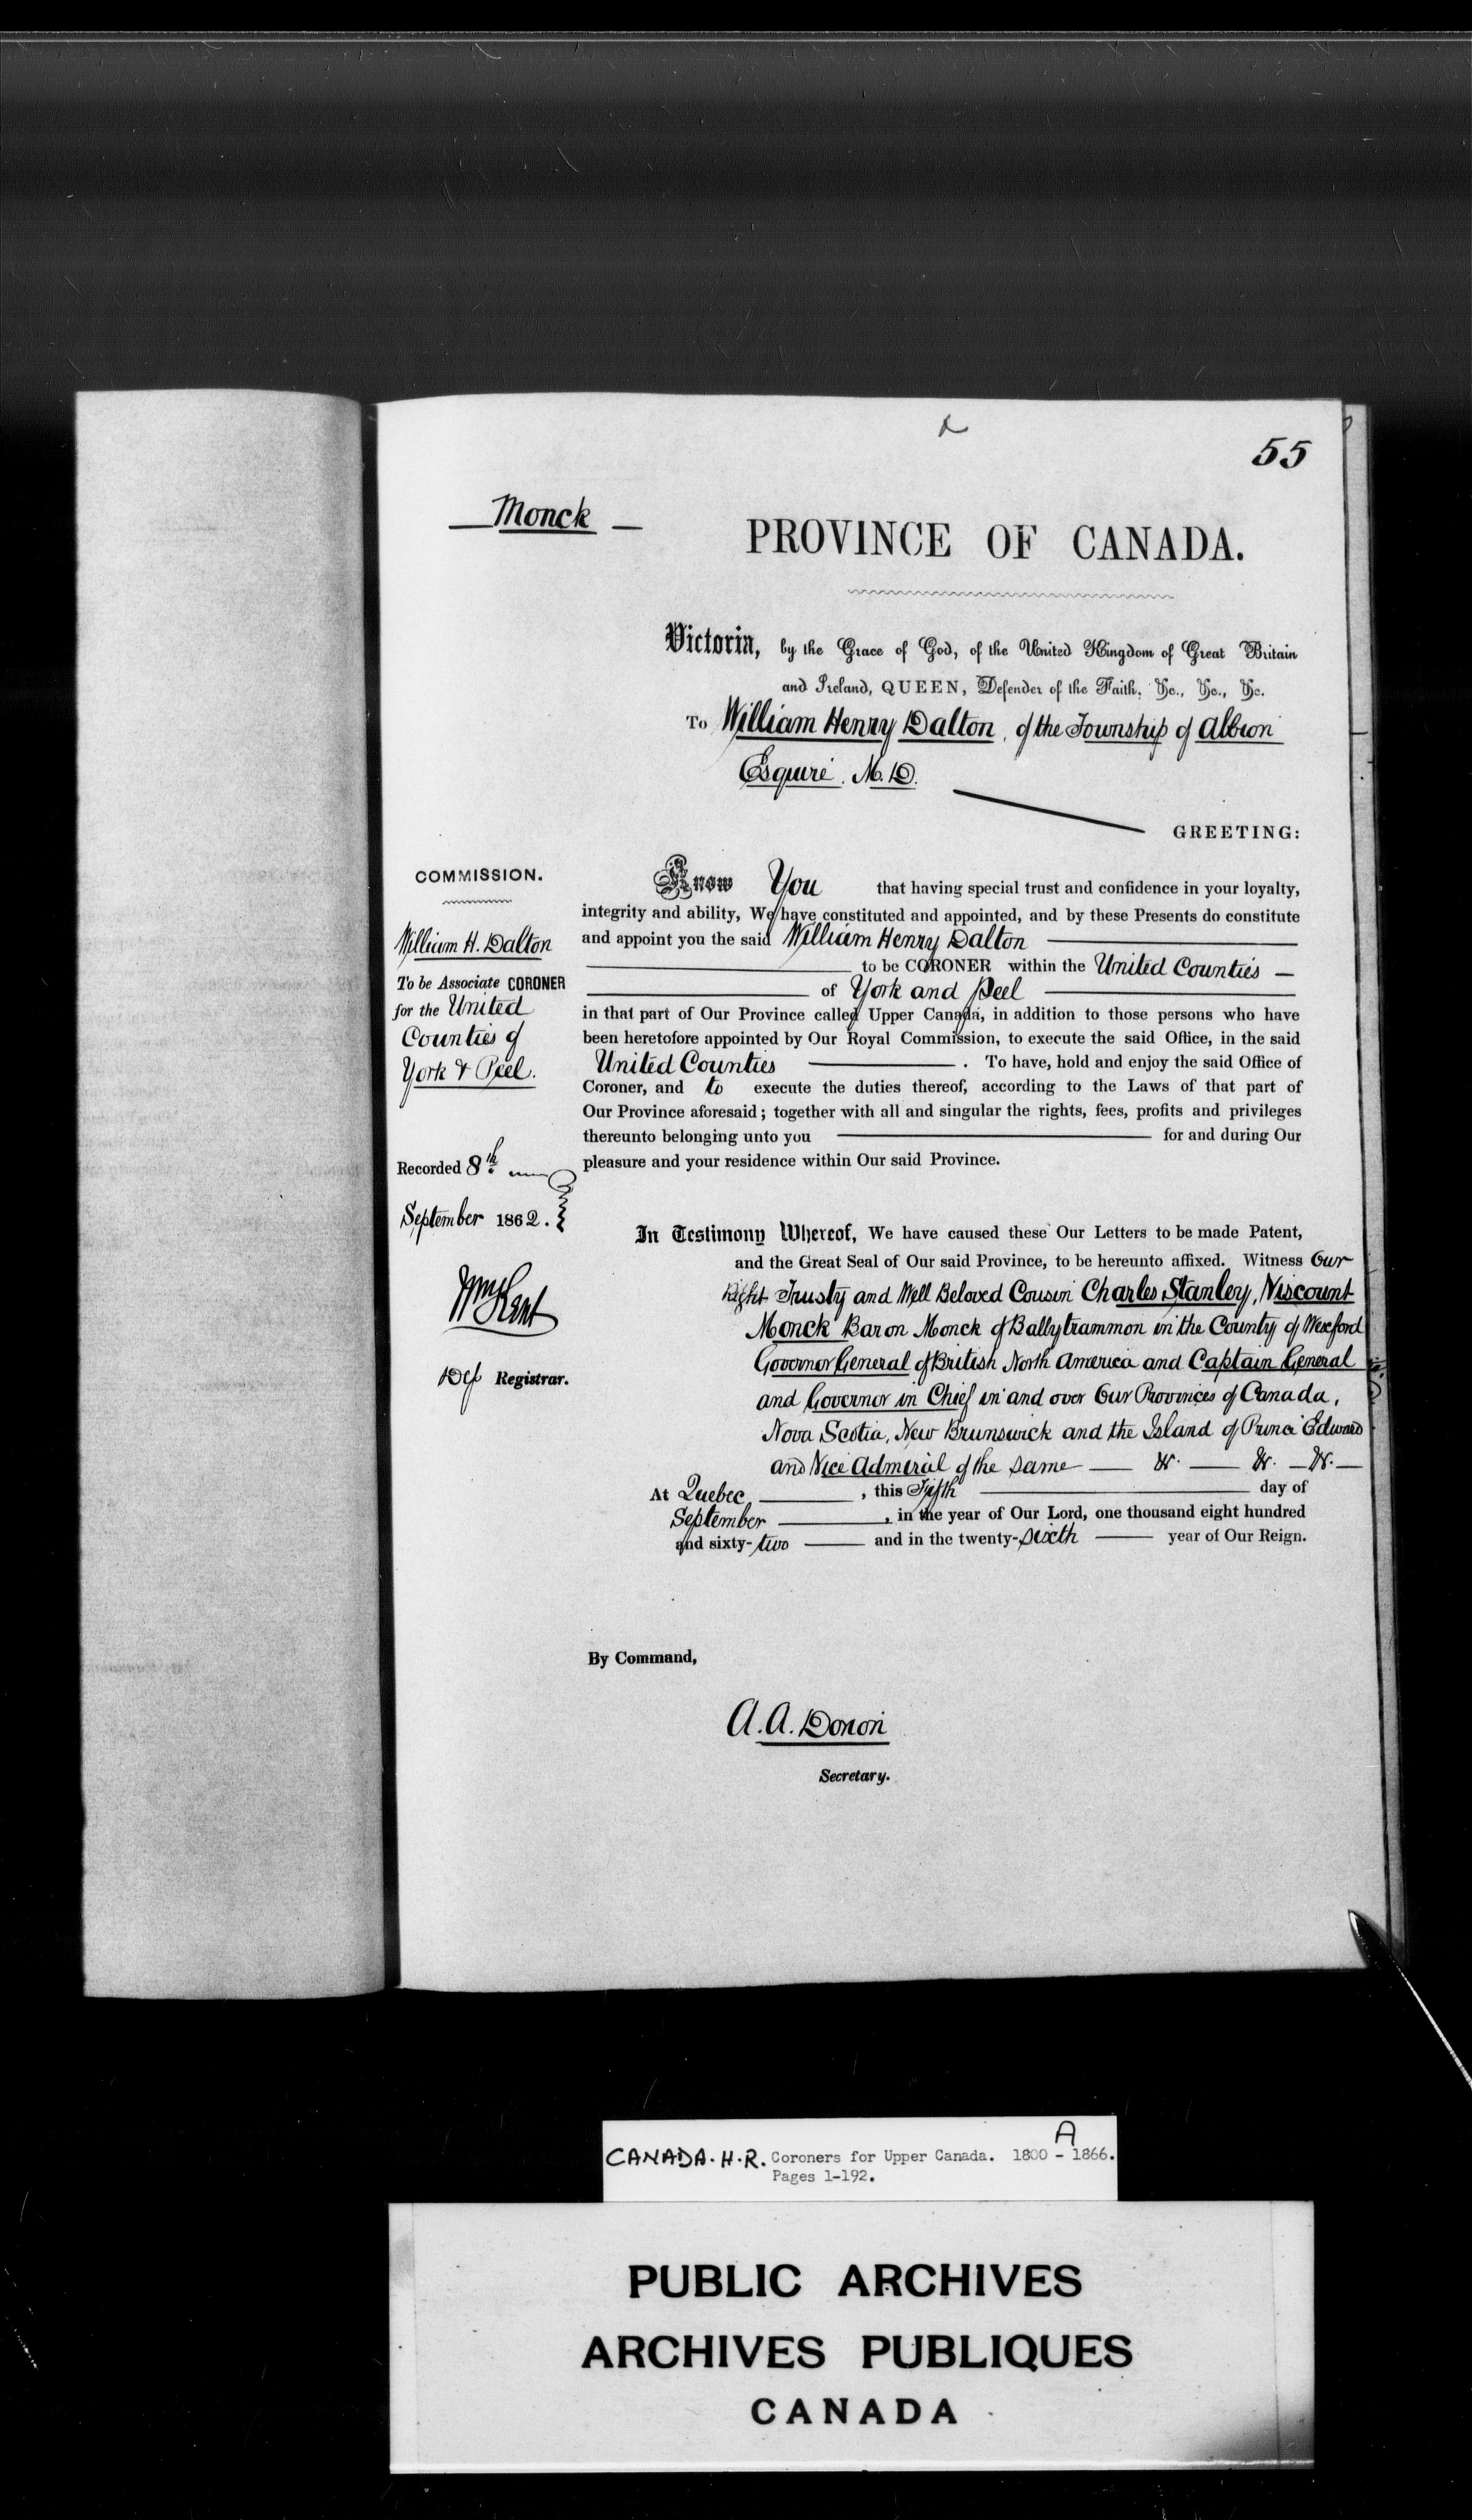 55
Monck
PROVINCE OF CANADA.
Victoria, by the Grace of God, of the United Kingdom of Great Britain
and Ireland, QUEEN, Defender of the Faith, &c., &c., &c.
To William Henry Dalton, of the Township of Albion
Esquire. M.D.
GREETING:
COMMISSION.
William H. Dalton
To be Associate CORONER
for the United
Counties of
York & Peel.
Recorded 8th
September 1862.
Wm Kent
Dep Registrar.
Know You that having special trust and confidence in your loyalty,
integrity and ability, We have constituted and appointed, and by these Presents do constitute
and appoint you the said William Henry Dalton
to be CORONER within the United Counties
of York and Peel
in that part of Our Province called Upper Canada, in addition to those persons who have
been heretofore appointed by Our Royal Commission, to execute the said Office, in the said
United Counties . To have, hold and enjoy the said Office of
Coroner, and to execute the duties thereof, according to the Laws of that part of
Our Province aforesaid; together with all and singular the rights, fees, profits and privileges
thereunto belonging unto you for and during Our
pleasure and your residence within Our said Province.
In Testimony Whereof, We have caused these Our Letters to be made Patent,
and the Great Seal of Our said Province, to be hereunto affixed. Witness Our
Right Trusty and Well Beloved Cousin Charles Stanley, Viscount
Monck Baron Monck of Ballytrammon in the County of Wexford
Governor General of British North America and Captain General
and Governor in Chief in and over Our Provinces of Canada,
Nova Scotia, New Brunswick and the Island of Prince Edward
and Vice Admiral of the same — &c. — &c. — &c. —
At Quebec, this Fifth day of
September, in the year of Our Lord, one thousand eight hundred
and sixty-two and in the twenty-sixth year of Our Reign.
By Command,
A. A. Dorion
Secretary.
A
CANADA. H.R. Coroners for Upper Canada. 1800 - 1866.
Pages 1-192.
PUBLIC ARCHIVES
ARCHIVES PUBLIQUES
CANADA